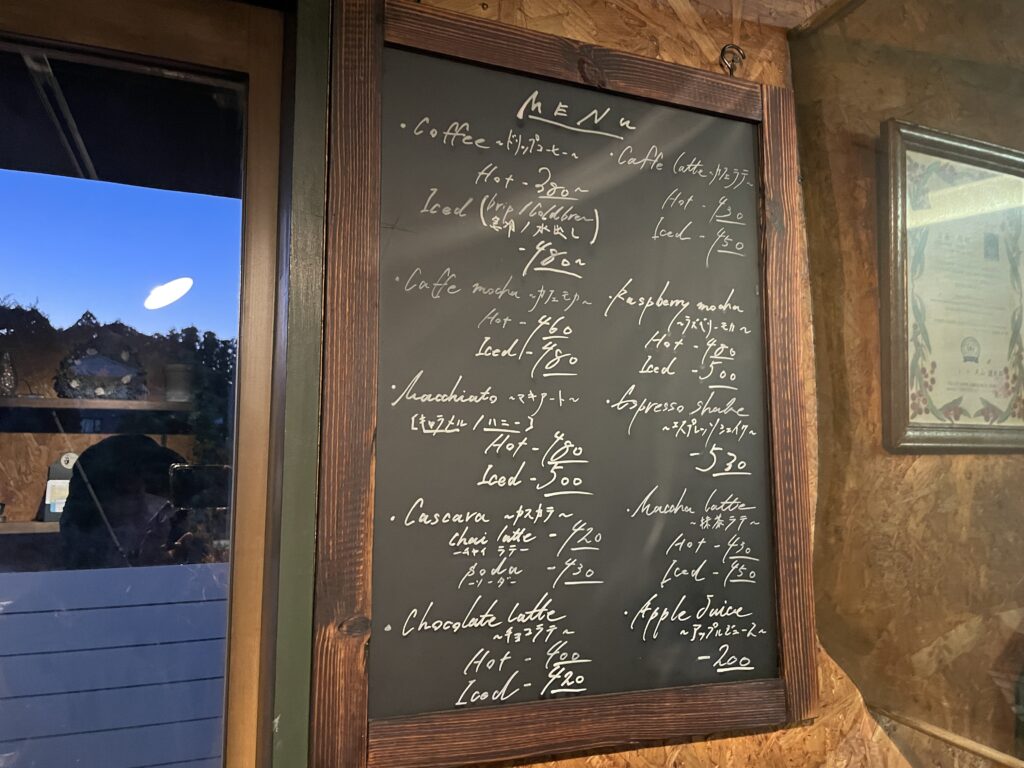 MENu
・Coffee ~ドリップコーヒー~
Hot - 380~
Iced (Drip / Coldbrew
急冷 / 水出し)
- 480~
・Caffe mocha ~カフェモカ~
Hot - 460
Iced - 480
・Macchiato ~マキアート~
[キャラメル / ハニー]
Hot - 480
Iced - 500
・Cascara ~カスカラ~
chai latte - 420
-チャイ ラテ-
soda - 430
-ソーダー-
・Chocolate latte
~チョコラテ~
Hot - 400
Iced - 420
・Caffe latte ~カフェラテ~
Hot - 430
Iced - 450
・Raspberry mocha
~ラズベリーモカ~
Hot - 480
Iced - 500
・Espresso shake
~エスプレッソシェイク~
- 530
・Maccha latte
~抹茶ラテ~
Hot - 430
Iced - 450
・Apple Juice
~アップルジュース~
- 200